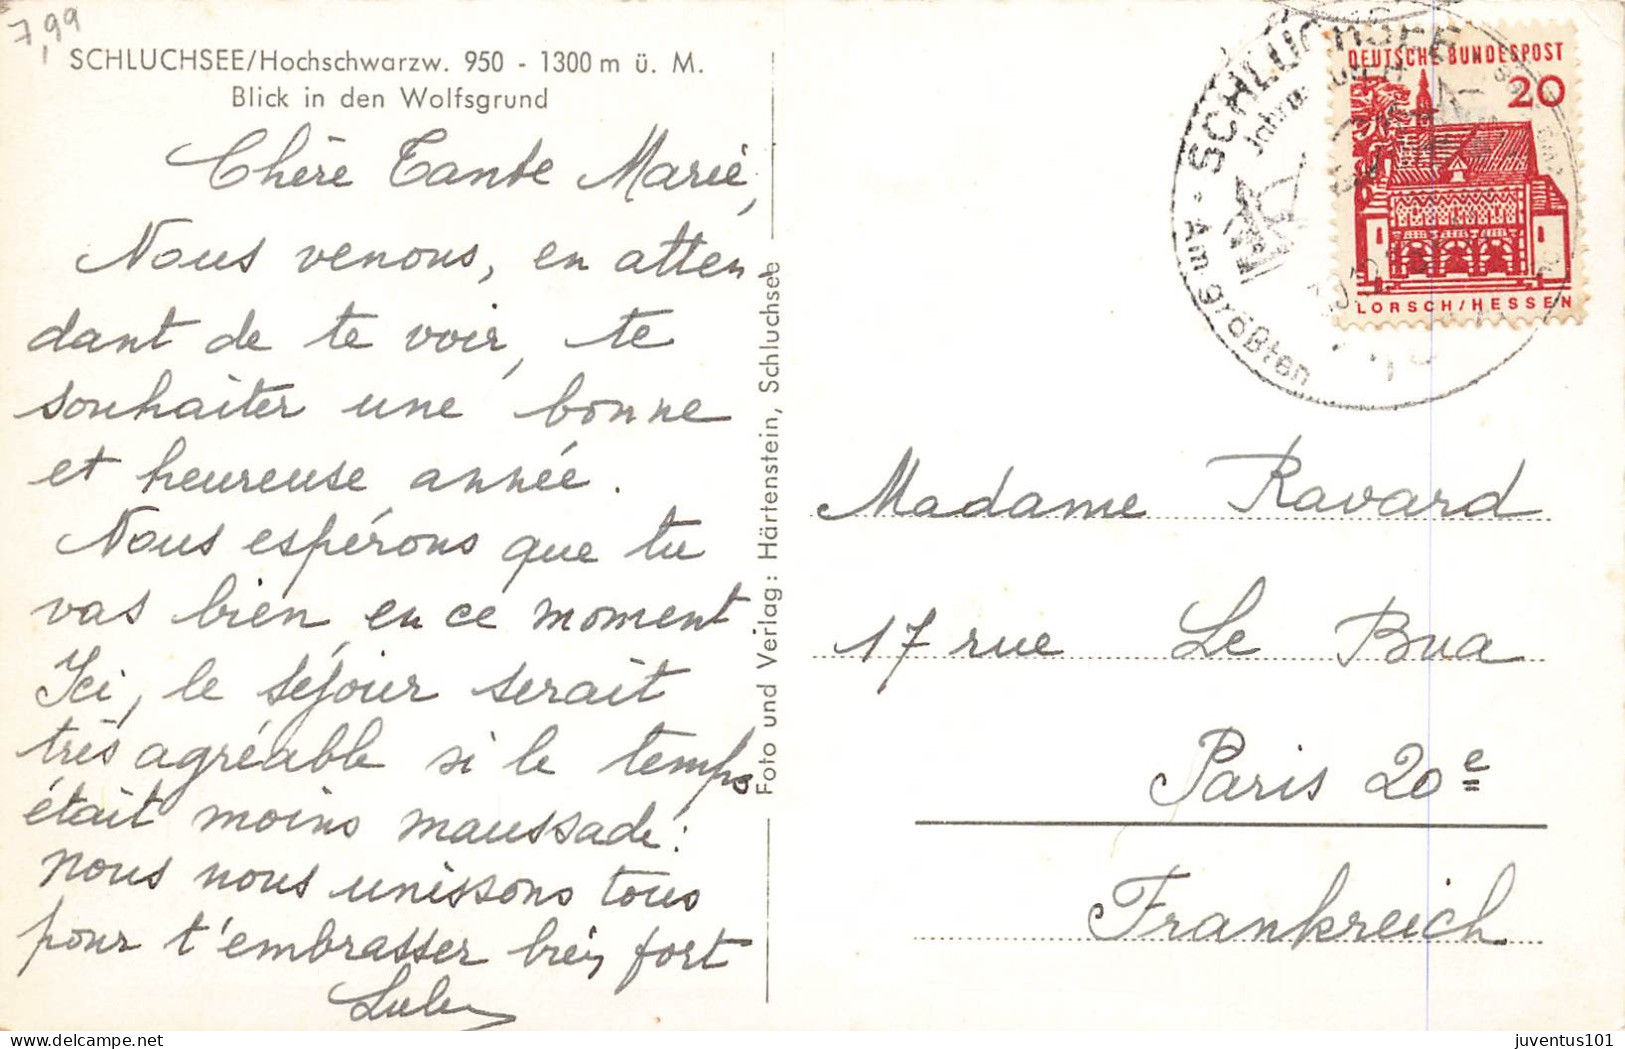 7,99
SCHLUCHSEE/Hochschwarzw. 950 - 1300 m ü. M.
Blick in den Wolfsgrund
Chère Tante Marie,
Nous venons, en atten
dant de te voir, te
souhaiter une bonne
et heureuse année.
Nous espérons que tu
vas bien en ce moment
Ici, le séjour serait
très agréable si le temps
était moins maussade:
nous nous unissons tous
pour t'embrasser bien fort
Foto und Verlag: Härtenstein, Schluchsee
SCHLUCHSEE
Am größten
DEUTSCHE BUNDESPOST
20
LORSCH/HESSEN
Madame Ravard
17 rue Le Bua
Paris 20e
Frankreich
juventus101